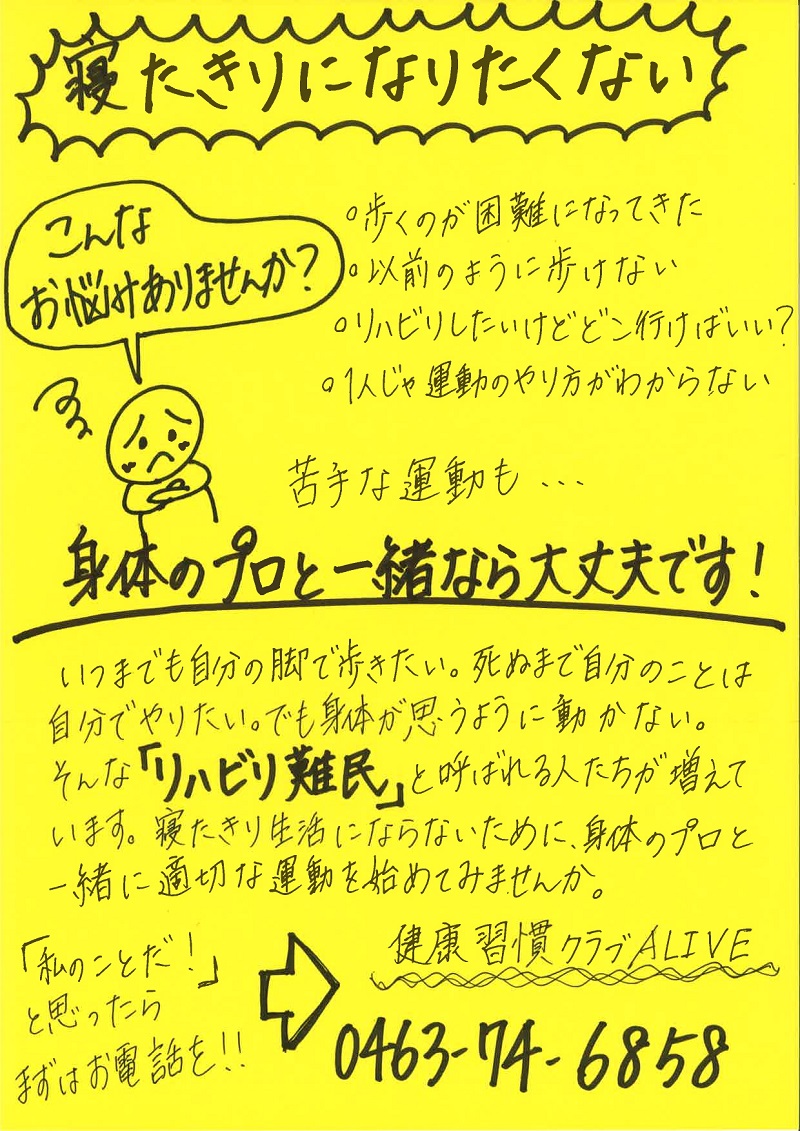 寝たきりになりたくない
こんな
お悩みありませんか?
○歩くのが困難になってきた
○以前のように歩けない
○リハビリしたいけどどこ行けばいい?
○1人じゃ運動のやり方がわからない
苦手な運動も…
身体のプロと一緒なら大丈夫です!
いつまでも自分の脚で歩きたい。死ぬまで自分のことは
自分でやりたい。でも身体が思うように動かない。
そんな「リハビリ難民」と呼ばれる人たちが増えて
います。寝たきり生活にならないために、身体のプロと
一緒に適切な運動を始めてみませんか。
「私のことだ!」
と思ったら
まずはお電話を!!
健康習慣クラブALIVE
0463-74-6858